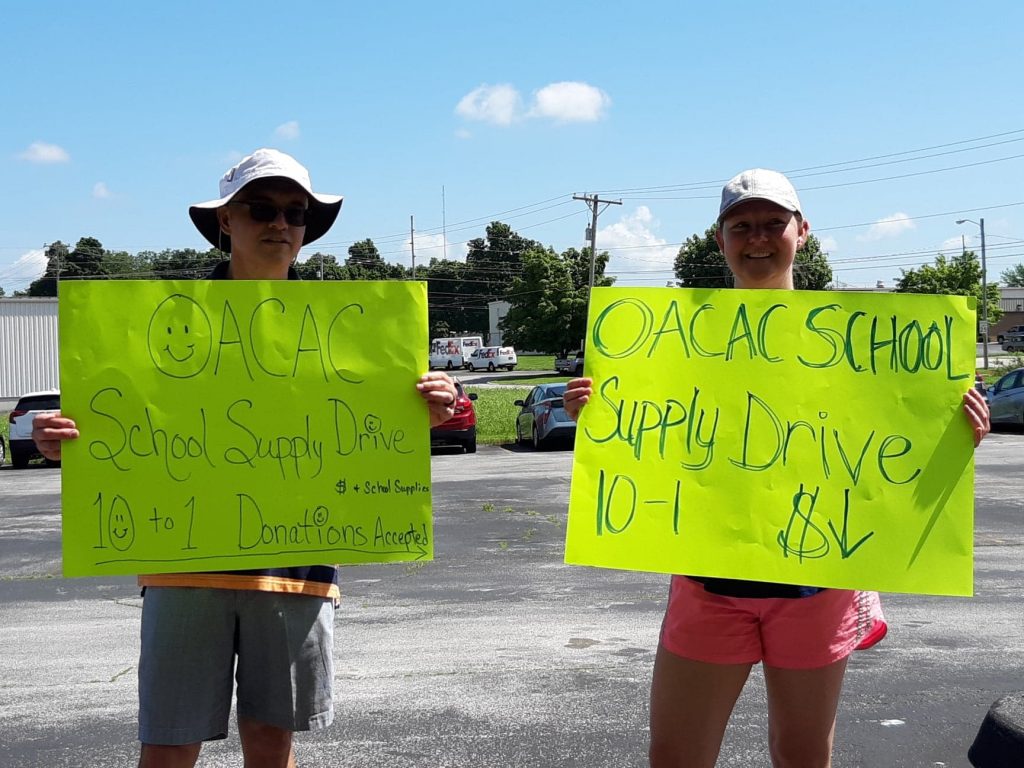 OACAC
School Supply Drive
$ + School Supplies
10 to 1 Donations Accepted
OACAC SCHOOL
Supply Drive
10-1 $↓
FedEx
FedEx